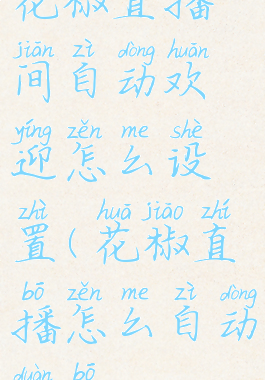 花椒直播
jiān zì dòng huān
间自动欢
yíng zěn me shè
迎怎么设
zhì huā jiāo zhí
置(花椒直
bō zěn me zì dòng
播怎么自动
duàn bō